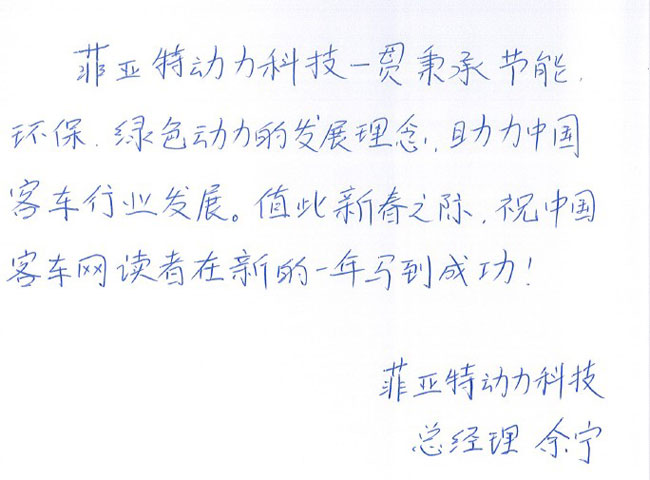 菲亚特动力科技一贯秉承节能、
环保、绿色动力的发展理念，助力中国
客车行业发展。值此新春之际，祝中国
客车网读者在新的一年马到成功！
菲亚特动力科技
总经理 余宁